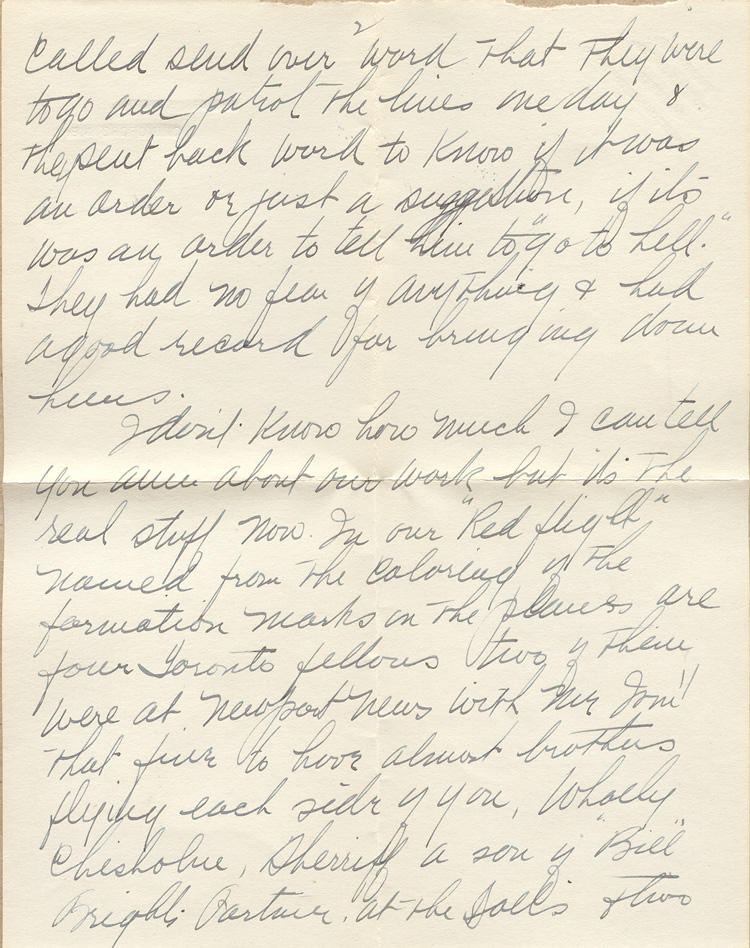 2
called send over word that they were
to go and patrol the lines one day &
they sent back word to know if it was
an order or just a suggestion, if its
was an order to tell him to "go to hell."
They had no fear of anything & had
a good record for bringing down
huns.
I don't know how much I can tell
you about our work but its the
real stuff now. In our "Red flight"
named from the coloring of the
formation marks on the planes are
four Toronto fellows two of them
were at Newport News with me
that fine to have almost brothers
flying each side of you, Wholly
Chisholme, Sherriff a son of "Bill"
Brights Partner. at the & two